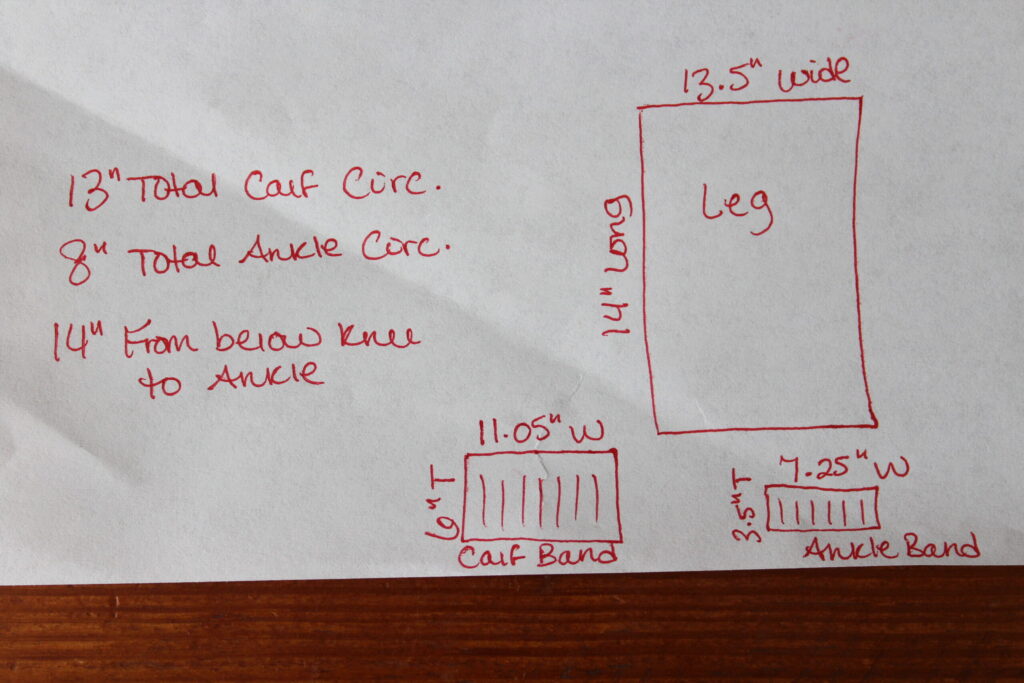 13" Total Calf Circ.
8" Total Ankle Circ.
14" From below knee
to Ankle
13.5" Wide
14" Long
Leg
11.05" W
6" T
Calf Band
7.25" W
3.5" T
Ankle Band